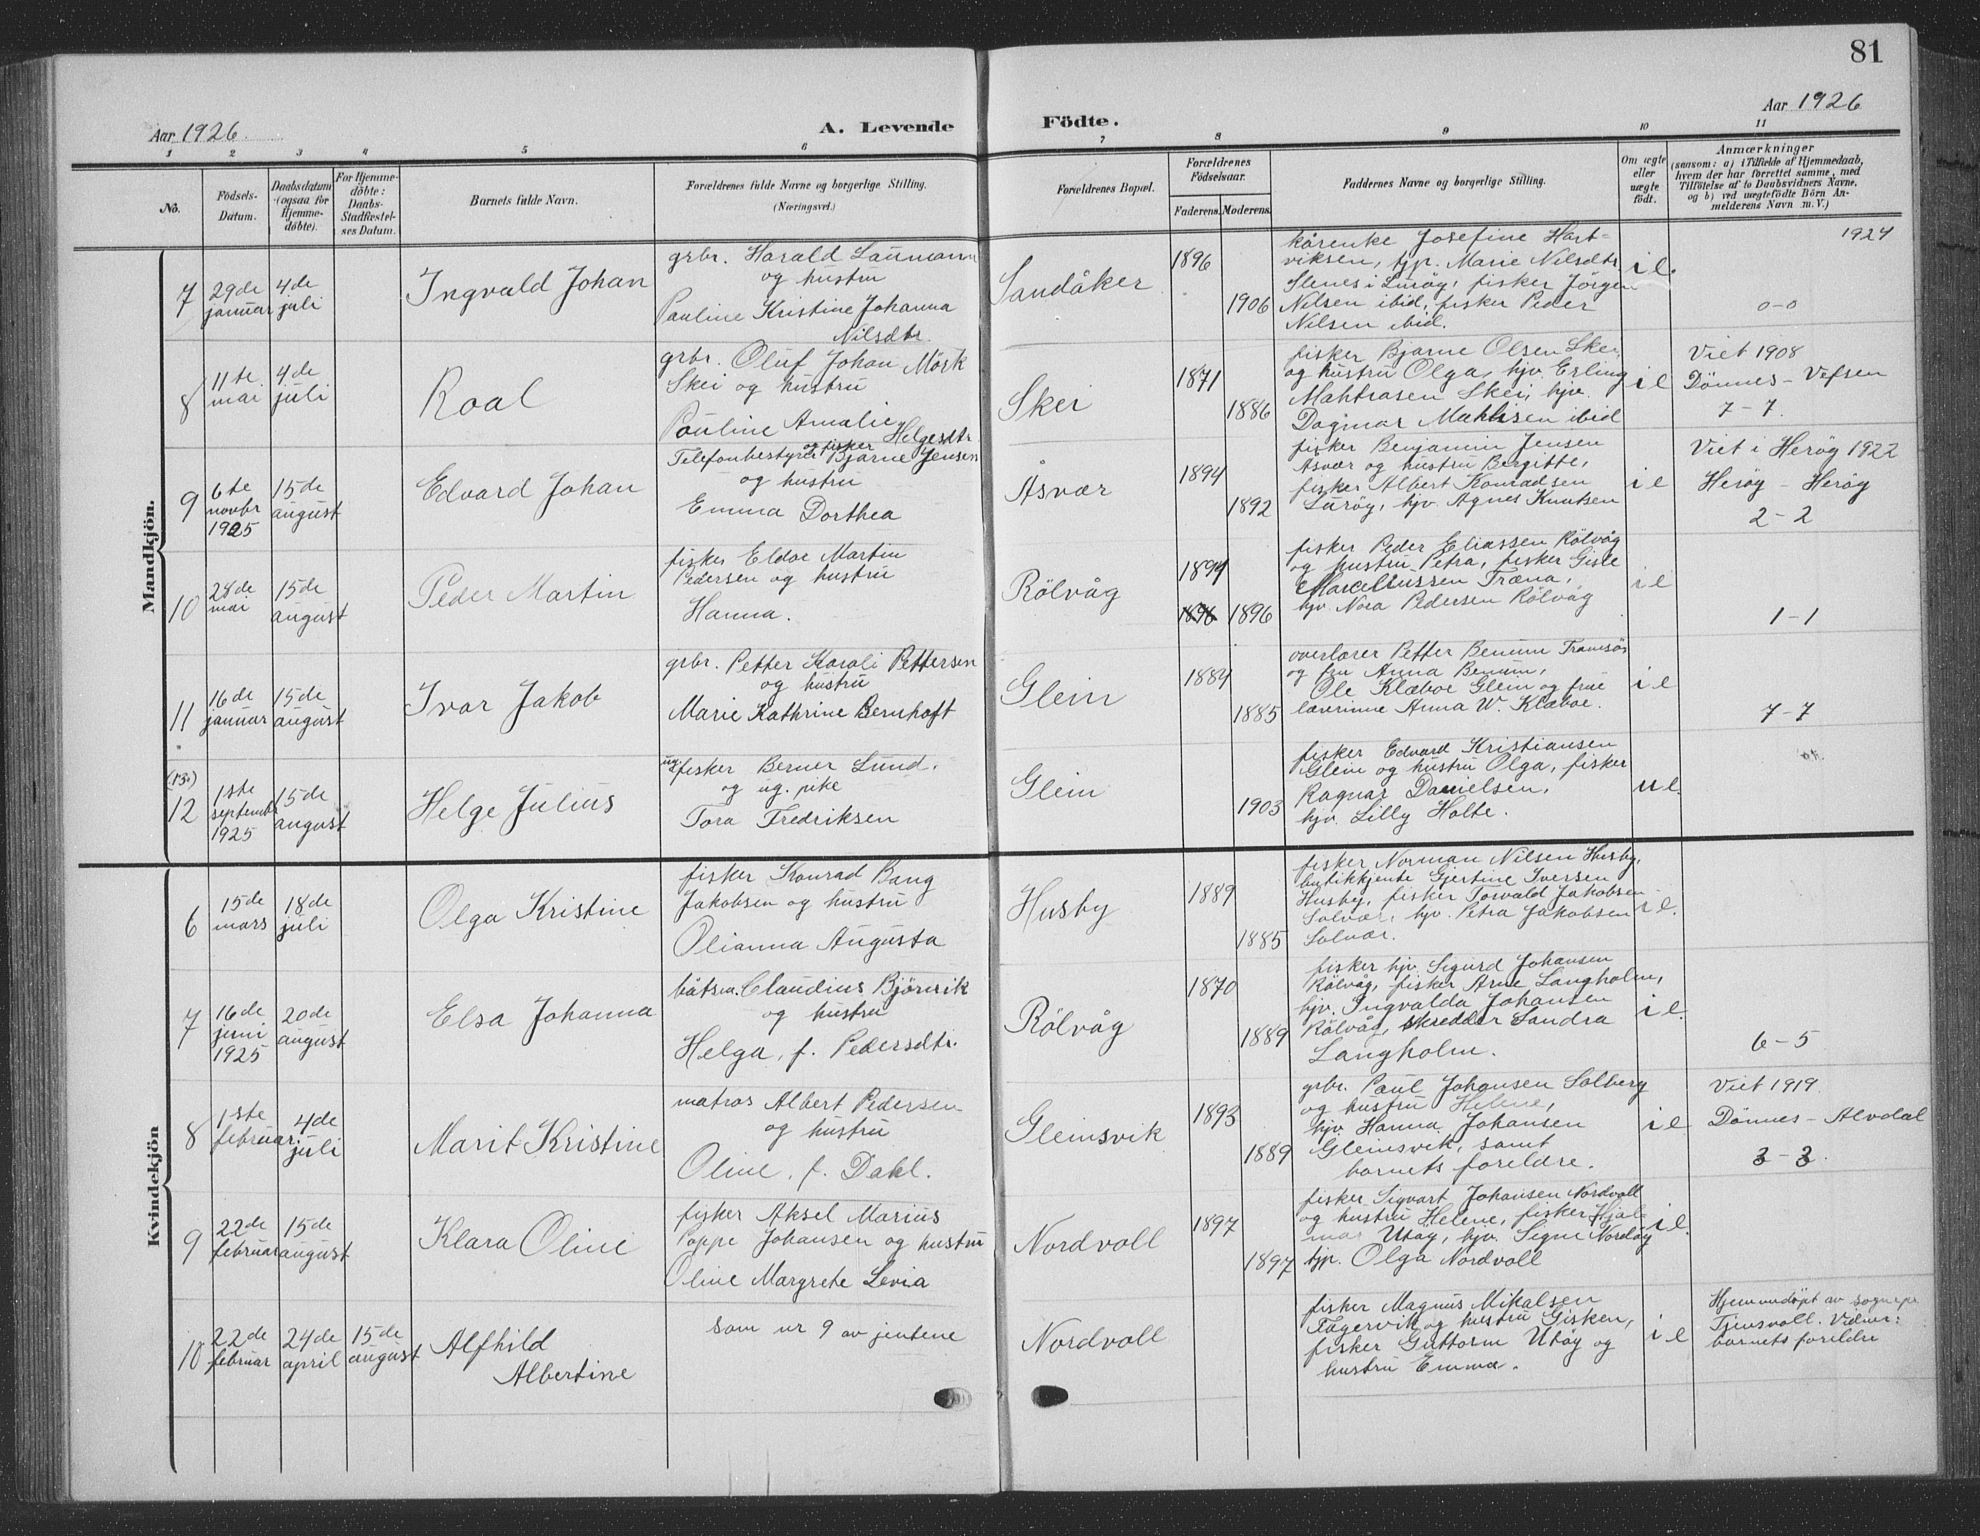 81
Aar 1926
A. Levende
Födte.
Aar 1926
1 2 3 4 5 6 7 8 9 10 11
No.
Födsels-
Datum.
Daabsdatum
(ogsaa for
Hjemme-
döbte).
For Hjemme-
döbte:
Daabs-
Stadfæstel-
ses Datum.
Barnets fulde Navn.
Forældrenes fulde Navne og borgerlige Stilling.
(Næringsvei.)
Forældrenes Bopæl.
Forældrenes
Födselsaar.
Faderens.
Moderens.
Faddernes Navne og borgerlige Stilling.
Om ægte
eller
uægte
födt.
Anmærkninger
(saasom: a) i Tilfælde af Hjemmedaab,
hvem der har forrettet samme, med
Tilföielse af to Daabsvidners Navne,
og b) ved uægtefödte Börn An-
melderens Navn m. V.)
Mandkjön.
7
29de
januar
4de
juli
Ingvald Johan
grbr. Harald Laumann
og hustru
Pauline Kristine Johanna
Nilsdtr.
Sandåker
1896
1906
kårenke Josefine Hart-
viksen, tjp. Marie Nilsdtr.
Stenes i Luröy, fisker Jörgen
Nilsen ibid, fisker Peder
Nilsen ibid.
i e.
1924
0-0
8
11te
mai
4de
juli
Roal
grbr. Oluf Johan Mörk
Skei og hustru
Pauline Amalie
Helgesdtr.
Skei
1871
1886
fisker Bjarne Olsen Skei
og hustru Olga, hjv. Erling
Skei, hjv.
Dagmar ibid
i e
Viet 1908
Dönnes - Vefsen
7-7.
9
6te
novbr
1925
15de
august
Edvard Johan
og fisker
Telefonbestyrer Bjarne Jensen
og hustru
Emma Dorthea
Åsvær
1894
1892
fisker Benjamin Jensen
Åsvær og hustru Bergitte,
fisker Albert Konradsen
Luröy, hjv. Agnes Knutsen
i e
Viet i Heröy 1922
Heröy - Heröy
2-2
10
28de
mai
15de
august
Peder Martin
fisker Eldor Martin
Pedersen og hustru
Hanna.
Rölvåg
1894
1896 1896
fisker Peder Eliassen Rölvåg
og hustru Petra, fisker Gisle
Marcelliussen Træna,
hjv. Nora Pedersen Rölvåg
i e
1-1
11
16de
januar
15de
august
Ivar Jakob
grbr. Petter Karoli Pettersen
og hustru
Marie Kathrine Bernhoft
Glein
1884
1885
overlærer Petter Benum Tromsö
og fru Anna Benum,
Ole Klæboe Glein og frue
lærerinne Anna W. Klæboe.
i e
7-7
(13.)
12
1ste
septembr
1925
15de
august
Helge Julius
ug. fisker Berner Lund.
og ug. pike
Tora Fredriksen
Glein
1903
fisker Edvard Kristiansen
Glein og hustru Olga, fisker
Ragnar Danielsen,
hjv. Lilly Holte.
u e.
Kvindekjön
6
15de
mars
18de
juli
Olga Kristine
fisker Konrad Bang
Jakobsen og hustru
Olianna Augusta
Husby
1889
1885
fisker Norman Nilsen Husby,
butikkjente Gjertine Iversen
Husby, fisker Torvald Jakobsen
Solvær, hjv. Petra Jakobsen
Solvær.
i e.
7
16de
juni
1925
20de
august
Elsa Johanna
båtsm. Claudius Björnvik
og hustru
Helga, f. Pedersdtr.
Rölvåg
1870
1889
fisker hjv. Sigurd Johansen
Rölvåg, fisker Arne Langholm,
hjv. Ingvalda Johansen
Rölvåg, skredder Sandra
Langholm.
i e.
6-5
8
1ste
februar
4de
juli
Marit Kristine
matros Albert Pedersen
og hustru
Oline, f. Dahl.
Gleinsvik
1893
1889
grbr. Paul Johansen Solberg
og hustru Helene,
hjv. Hanna Johansen
Gleinsvik, samt
barnets foreldre.
i e
Viet 1919
Dönnes - Alvdal
3-3.
9
22de
februar
15de
august
Klara Oline
fisker Aksel Marius
Poppe Johansen og hustru
Oline Margrete Levia
Nordvoll
1897
1897
fisker Sigvart Johansen Nordvoll
og hustru Helene, fisker Hjal-
mar Utöy, hjv. Signe Nordöy
tjp. Olga Nordvoll
i e.
10
22de
februar
24de
april
15de
august
Alfhild
Albertine
som nr 9 av jentene
Nordvoll
fisker Magnus Mikalsen
Fagervik og hustru Gisken,
fisker Guttorm Utöy og
hustru Emma.
i e
Hjemmedöpt av sognepr.
Tjensvoll. Vidner:
barnets foreldre